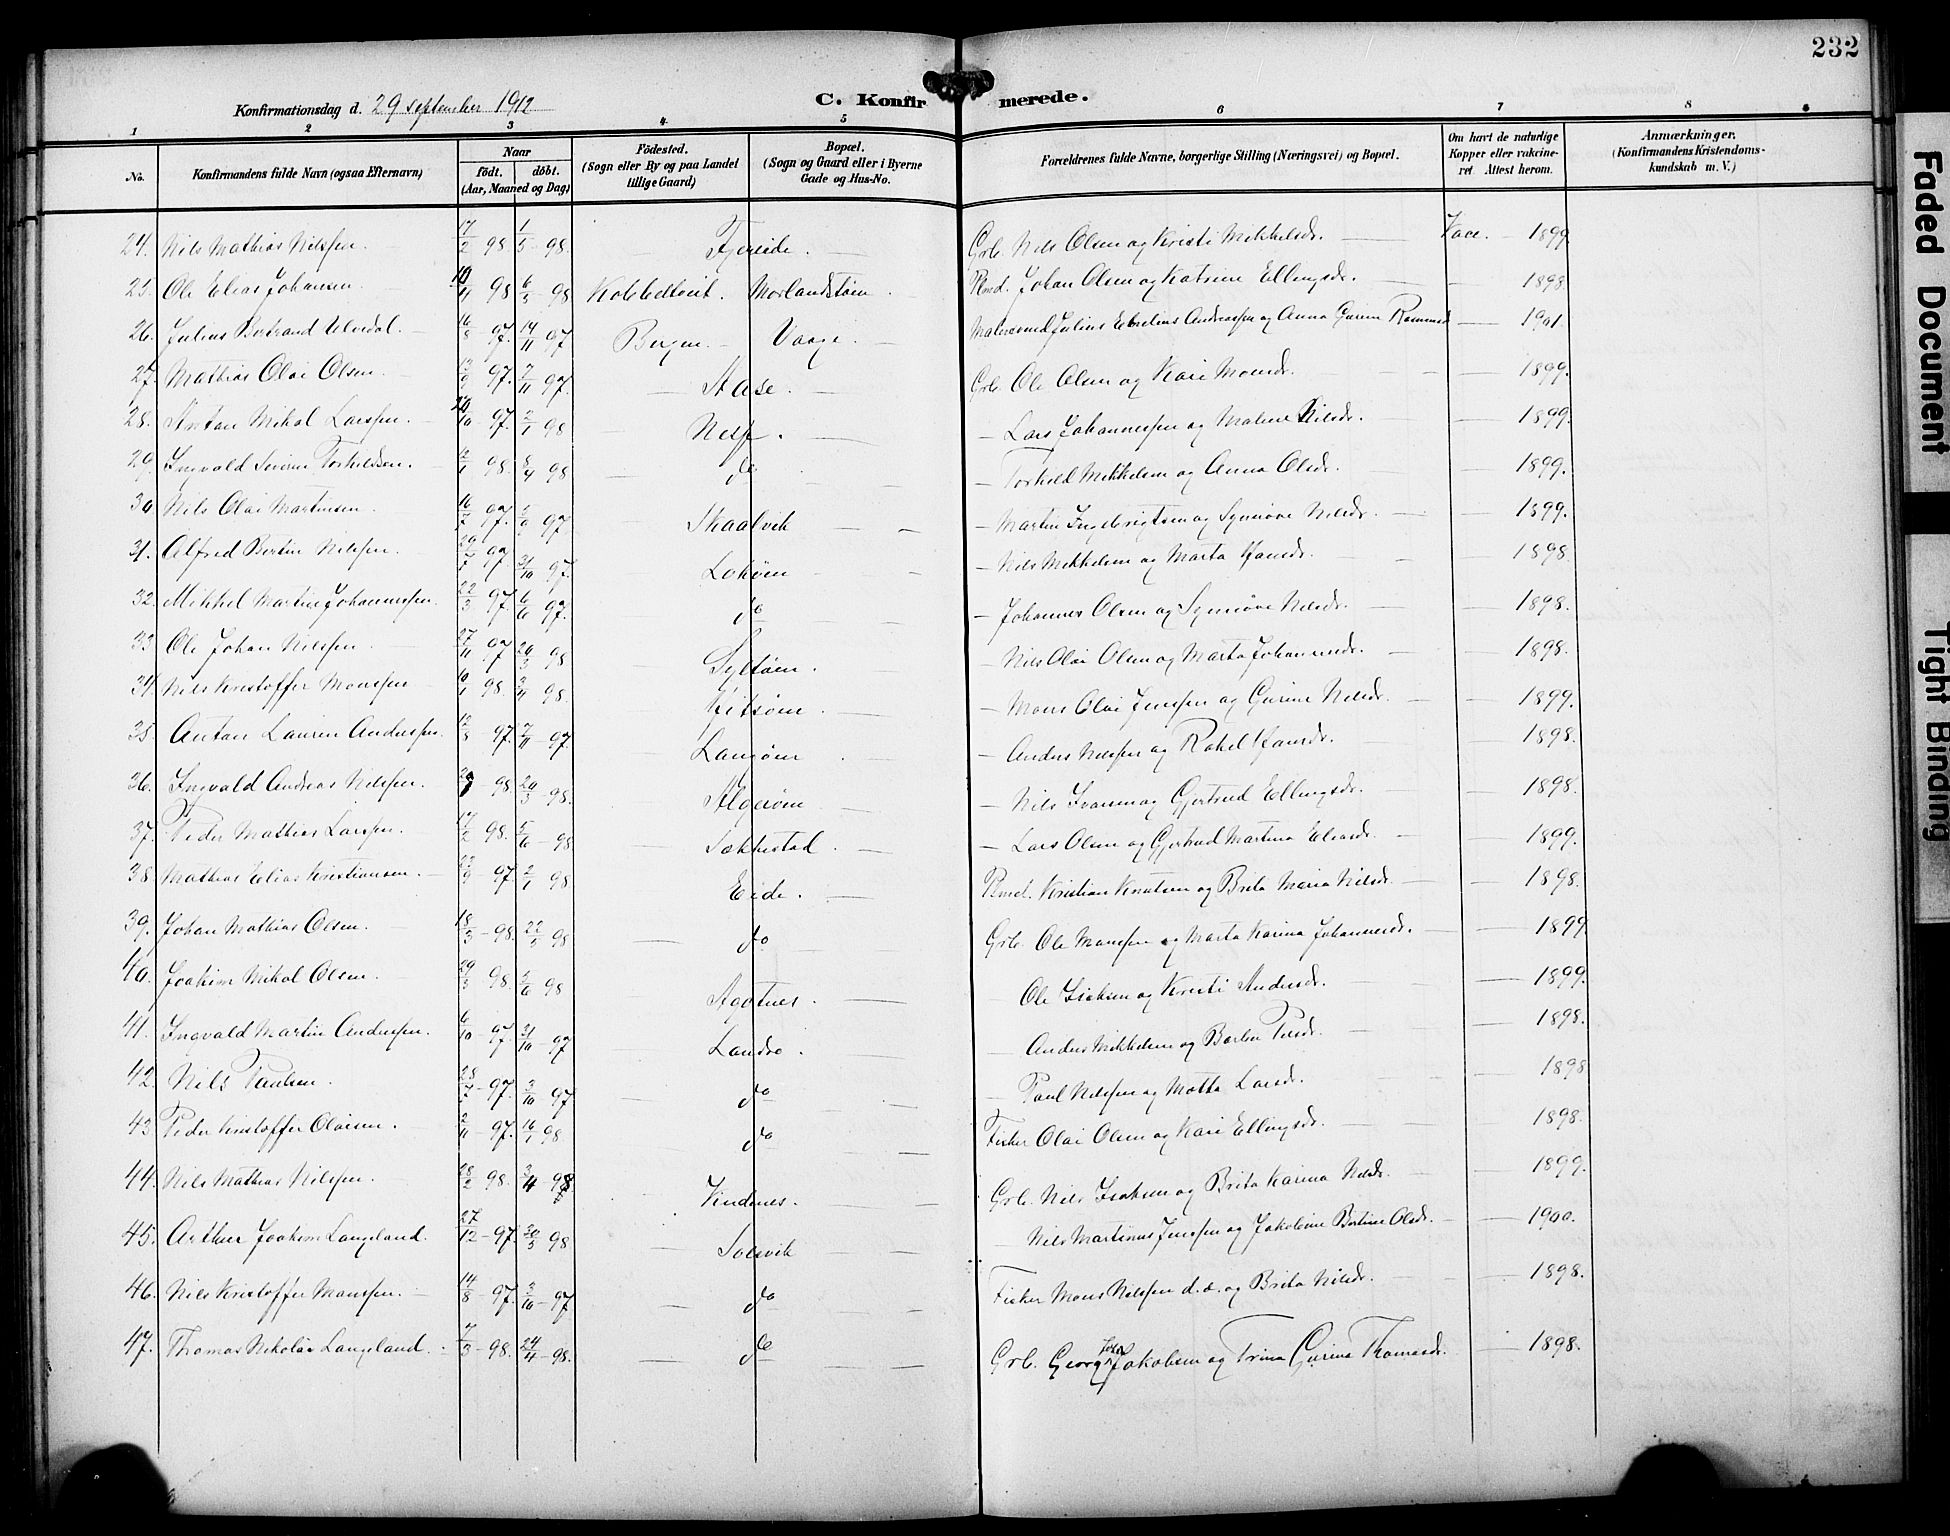 232
Konfirmationsdag d. 29 september 1912
C. Konfirmerede.
1 2 3 4. 5 6 7 8
No. Konfirmandens fulde Navn (ogsaa Efternavn) Naar födt. döbt. (Aar, Maaned og Dag) Födested. (Sogn eller By og paa Landet tillige Gaard) Bopæl. (Sogn og Gaard eller i Byerne Gade og Hus-No. Forældrenes fulde Navne, borgerlige Stilling (Næringsvei) og Bopæl. Om havt de naturlige Kopper eller vakcineret. Attest herom. Anmærkninger. (Konfirmandens Kristendomskundskab m. V.)
24. Nils Mathias Nilssen. 17/2 98 1/5 98. Fjereide. Grb. Nils Olsen og Kristi Mikkelsdr. Vacc. 1899
25. Ole Elias Johansen. 98 6/5 98 Kobbeltveit. Morlandstøen. Plmd. Johan Olsen og Katrine Ellingsdr. 1898
26. Julius Bertrand Ulvedal. 16/8 97. 14/11 97 Bergen. Vaage. Malersvend Julius Andreassen og Anna Gurine 1901.
27. Mathias Olai Olsen. 97. 7/11 97. Aase. Grb. Ole Olsen og Kari Monsdr. 1899.
28. Anton Mikal Larssen. 97. 2/1 98 Nesse. Lars Johannessen og Malene Nilsdr. 1899.
29. Ingvald Severin Torkildsen. 12/1 98. 8/4 98 do Torkild Mikkelsen og Anna Olsdr. 1899.
30 Nils Olai Martinsen. 16/7 97. 97 Skaalvik Martin Ingebrigtsen og Synnøve Nilsdr. 1899.
31. Alfred Bertin Nilssen. 29/7 97. 31/10 97. Lokøen Nils Mikkelsen og Marta Hansdr. 1898.
32. Mikkel Martin Johannessen. 22/3 97 6/6 97. do Johannes Olsen og Synnøve Nilsdr. 1898.
33 Ole Johan Nilssen. 27/11 97 20/3 98 Syltøen. Nils Olai Olsen og Marta Johannesdr. 1898.
34. Nils Kristoffer Monssen 10/1 98. 3/4 98. Geitøen. Mons Olai Jenssen og Gurine Nilsdr. 1899.
35. Anton Laurin Anderssen. 12/8 97. 7/11 97. Langøen Anders Nilssen og Rakel Hansdr. 1898.
36. Ingvald Andreas Nilssen. 98 20/3 98. Algerøen. Nils Ivarsen og Gjertrud Ellingsdr. 1898.
37. Peder Mathias Larssen. 17/2 98. 5/6 98 Sekkestad. Lars Olsen og Gjertrud Martina Eliasdr. 1899.
38. Mathias Elias Kristiansen. 97 2/1 98 Eide. Plmd. Kristian Knutsen og Brita Maria Nilsdr. 1898.
39. Johan Mathias Olsen. 18/3 98. 22/5 98 do Grb. Ole Monssen og Marta Karina Johannesdr. 1899
40. Joakim Mikal Olsen. 29/3 98. 5/6 98 Agotnes. Ole Isaksen og Kristi Andersdr. 1899.
41. Ingvald Martin Anderssen. 6/10 97. 31/10 97 Landro. Anders Mikkelsen og Barbra Persdr. 1898.
42. Nils Paulsen. 28/7 97. 3/10 97 do Paul Nilssen og Marta Larsdr. 1898
43 Peder Kristoffer Olaisen. 2/11 97. 16/1 98 do Fisker Olai Olsen og Kari Ellingsdr. 1898.
44. Nils Mathias Nilssen. 28/2 98. 3/4 98 Vindenes. Grb. Nils Isaksen og Brita Karina Nilsdr. 1899.
45. Arthur Joakim Langeland. 27/12 97. 30/5 98 Solsvik Nils Martinus Jenssen og Jakobine Bertine Olsdr. 1900.
46. Nils Kristoffer Monssen. 14/8 97. 3/10 97 do Fisker Mons Nilssen d.æ. og Brita Nilsdr. 1898.
47. Thomas Nikolai Langeland. 7/3 98. 24/4 98. do Grb. Georg Jakobsen og Trina Gurina Thomasdr. 1898.
Faded Document
Tight Binding